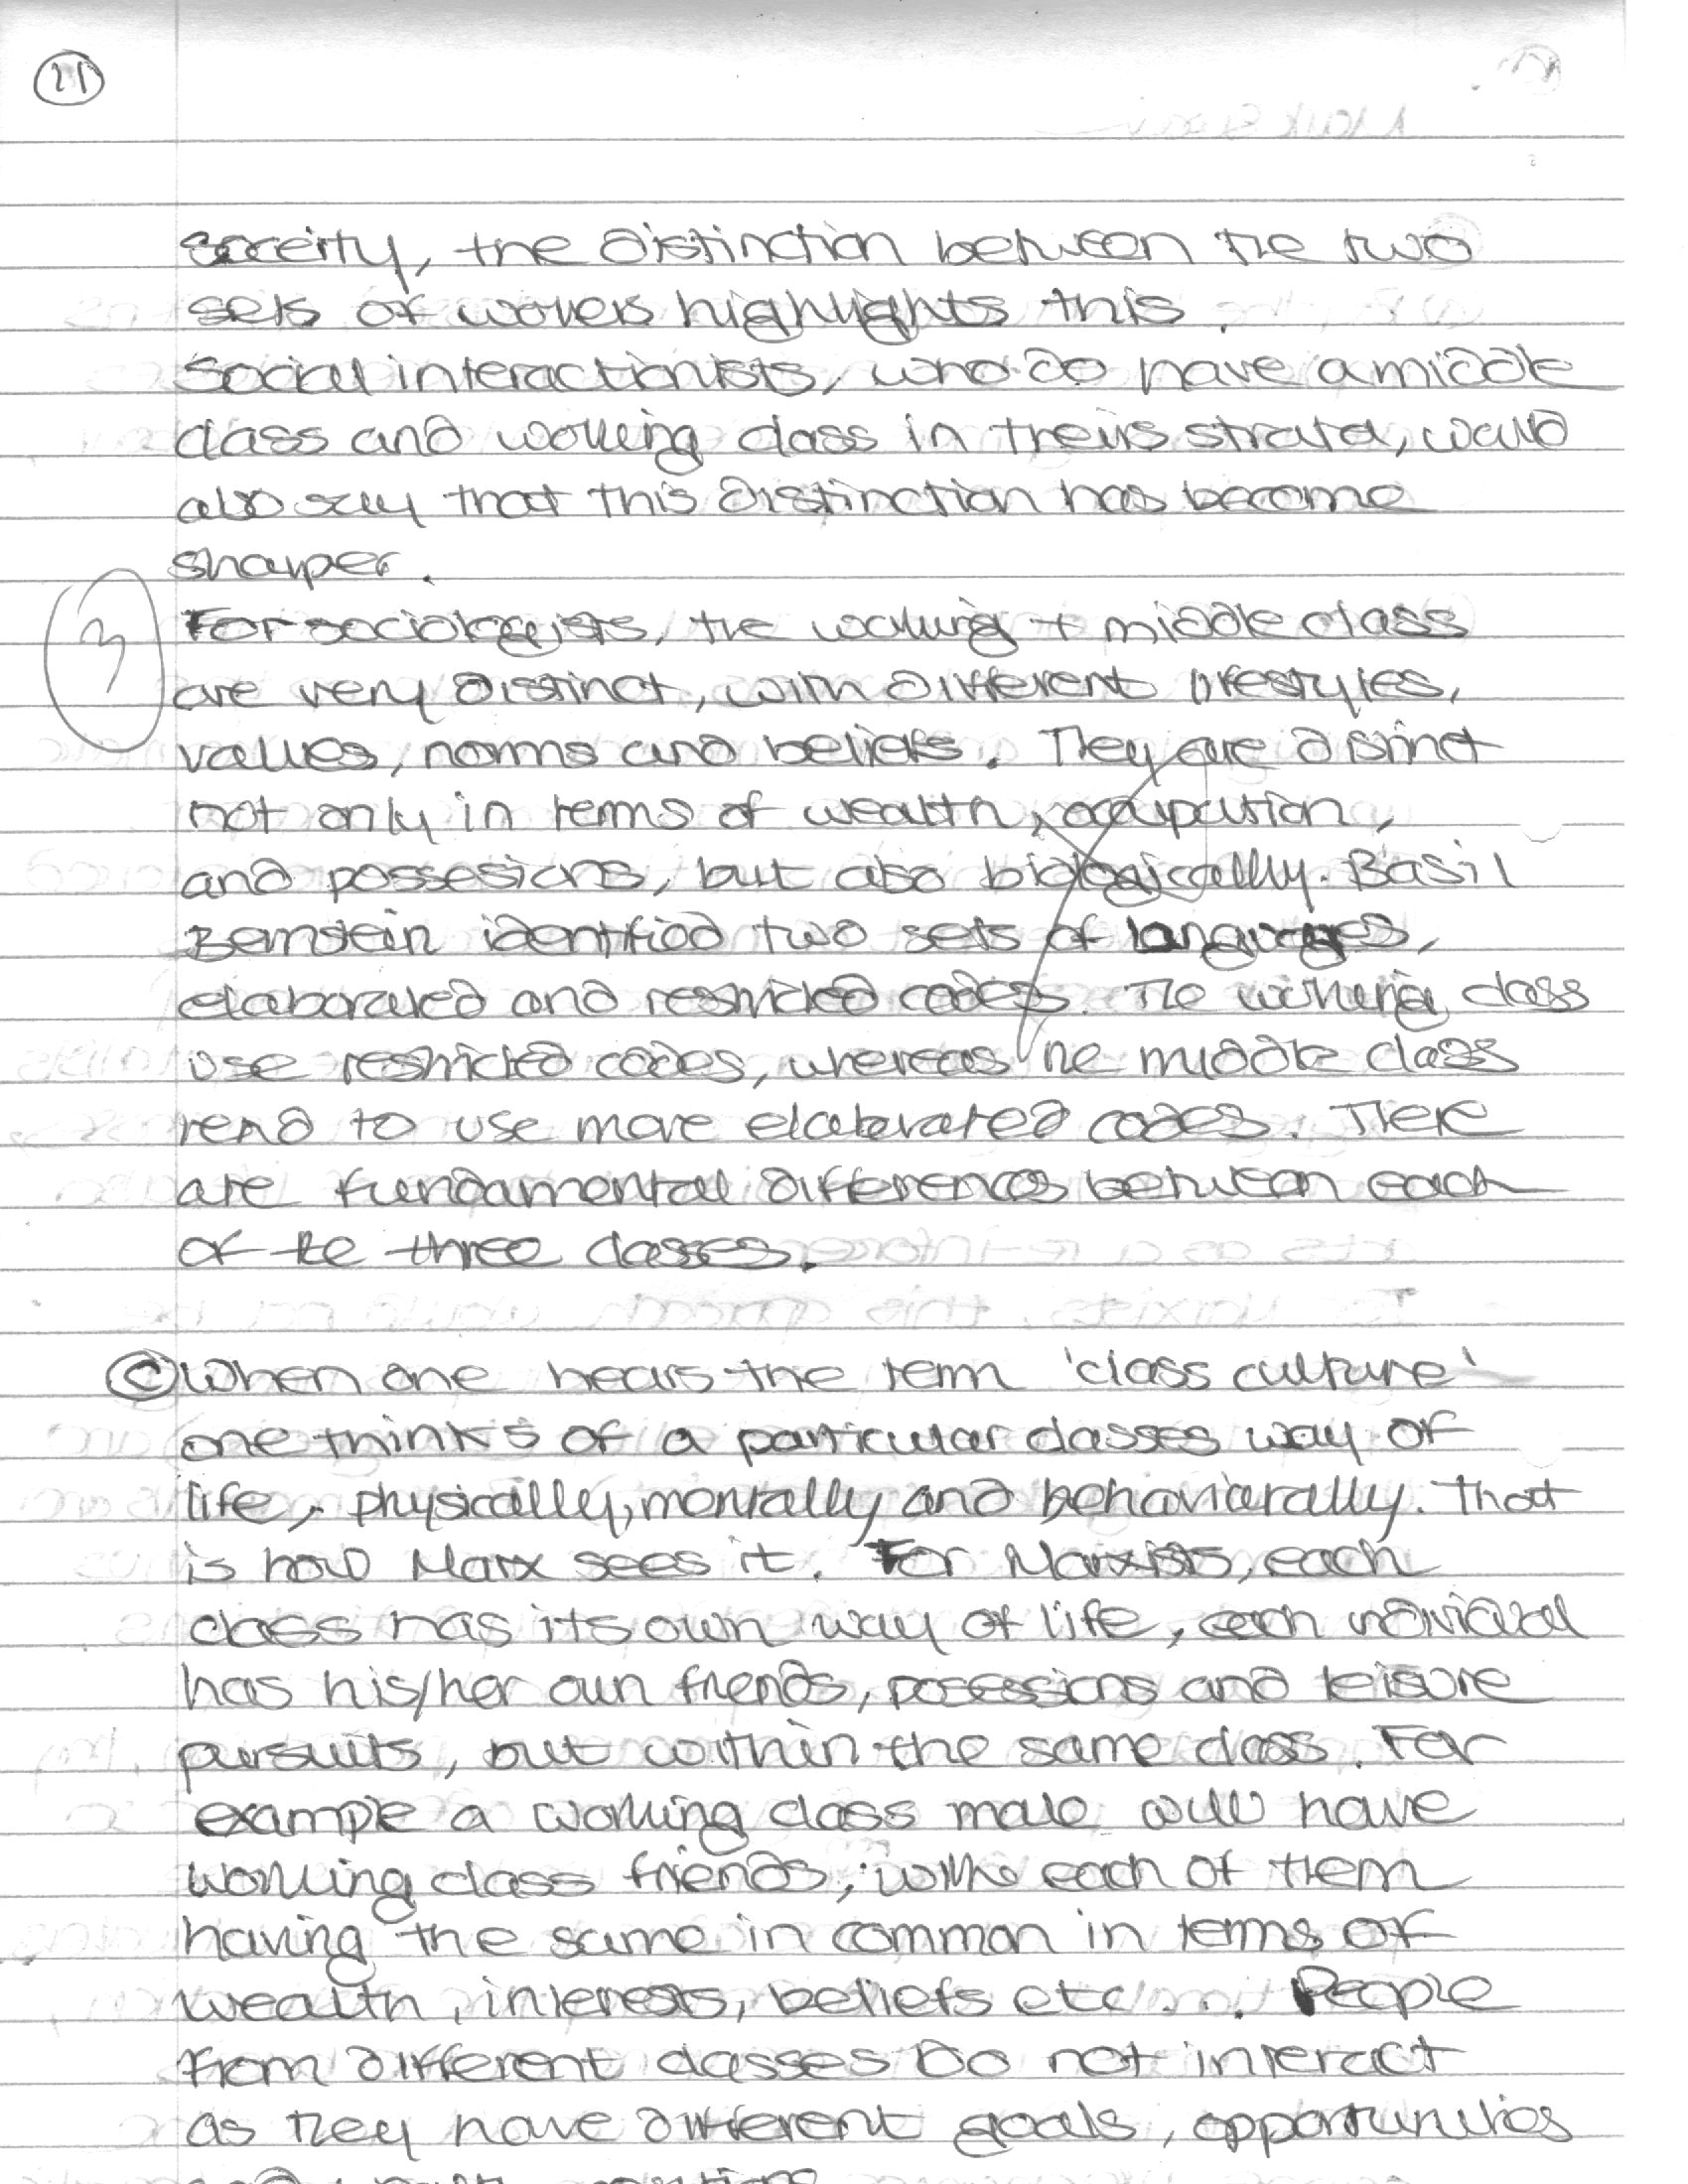 21
soceirty, the distinction between the two
sets of workers highlights this.
Social interactionists, who do have a middle
class and working class in theirs strata, would
also say that this distinction has become
sharper.
3
For sociologists, the working + middle class
are very distinct, with different lifestyles,
values, norms and beliefs. They are distinct
not only in terms of wealth, occupation,
and possesions, but also biologically. Basil
Bernstein identified two sets of languages,
elaborated and restricted codes. The working class
use restricted codes, whereas the middle class
tend to use more elaborated codes. There
are fundamental differences between each
of the three classes.
C When one hears the term 'class culture'
one thinks of a particular classes way of
life, physically, mentally and behaviourally. That
is how Marx sees it. For Marxists, each
class has its own way of life, each individual
has his/her own friends, possessions and leisure
pursuits, but within the same class. For
example a working class male will have
working class friends, with each of them
having the same in common in terms of
wealth, interests, beliefs etc... People
from different classes Do not interact
as they have different goals, opportunities